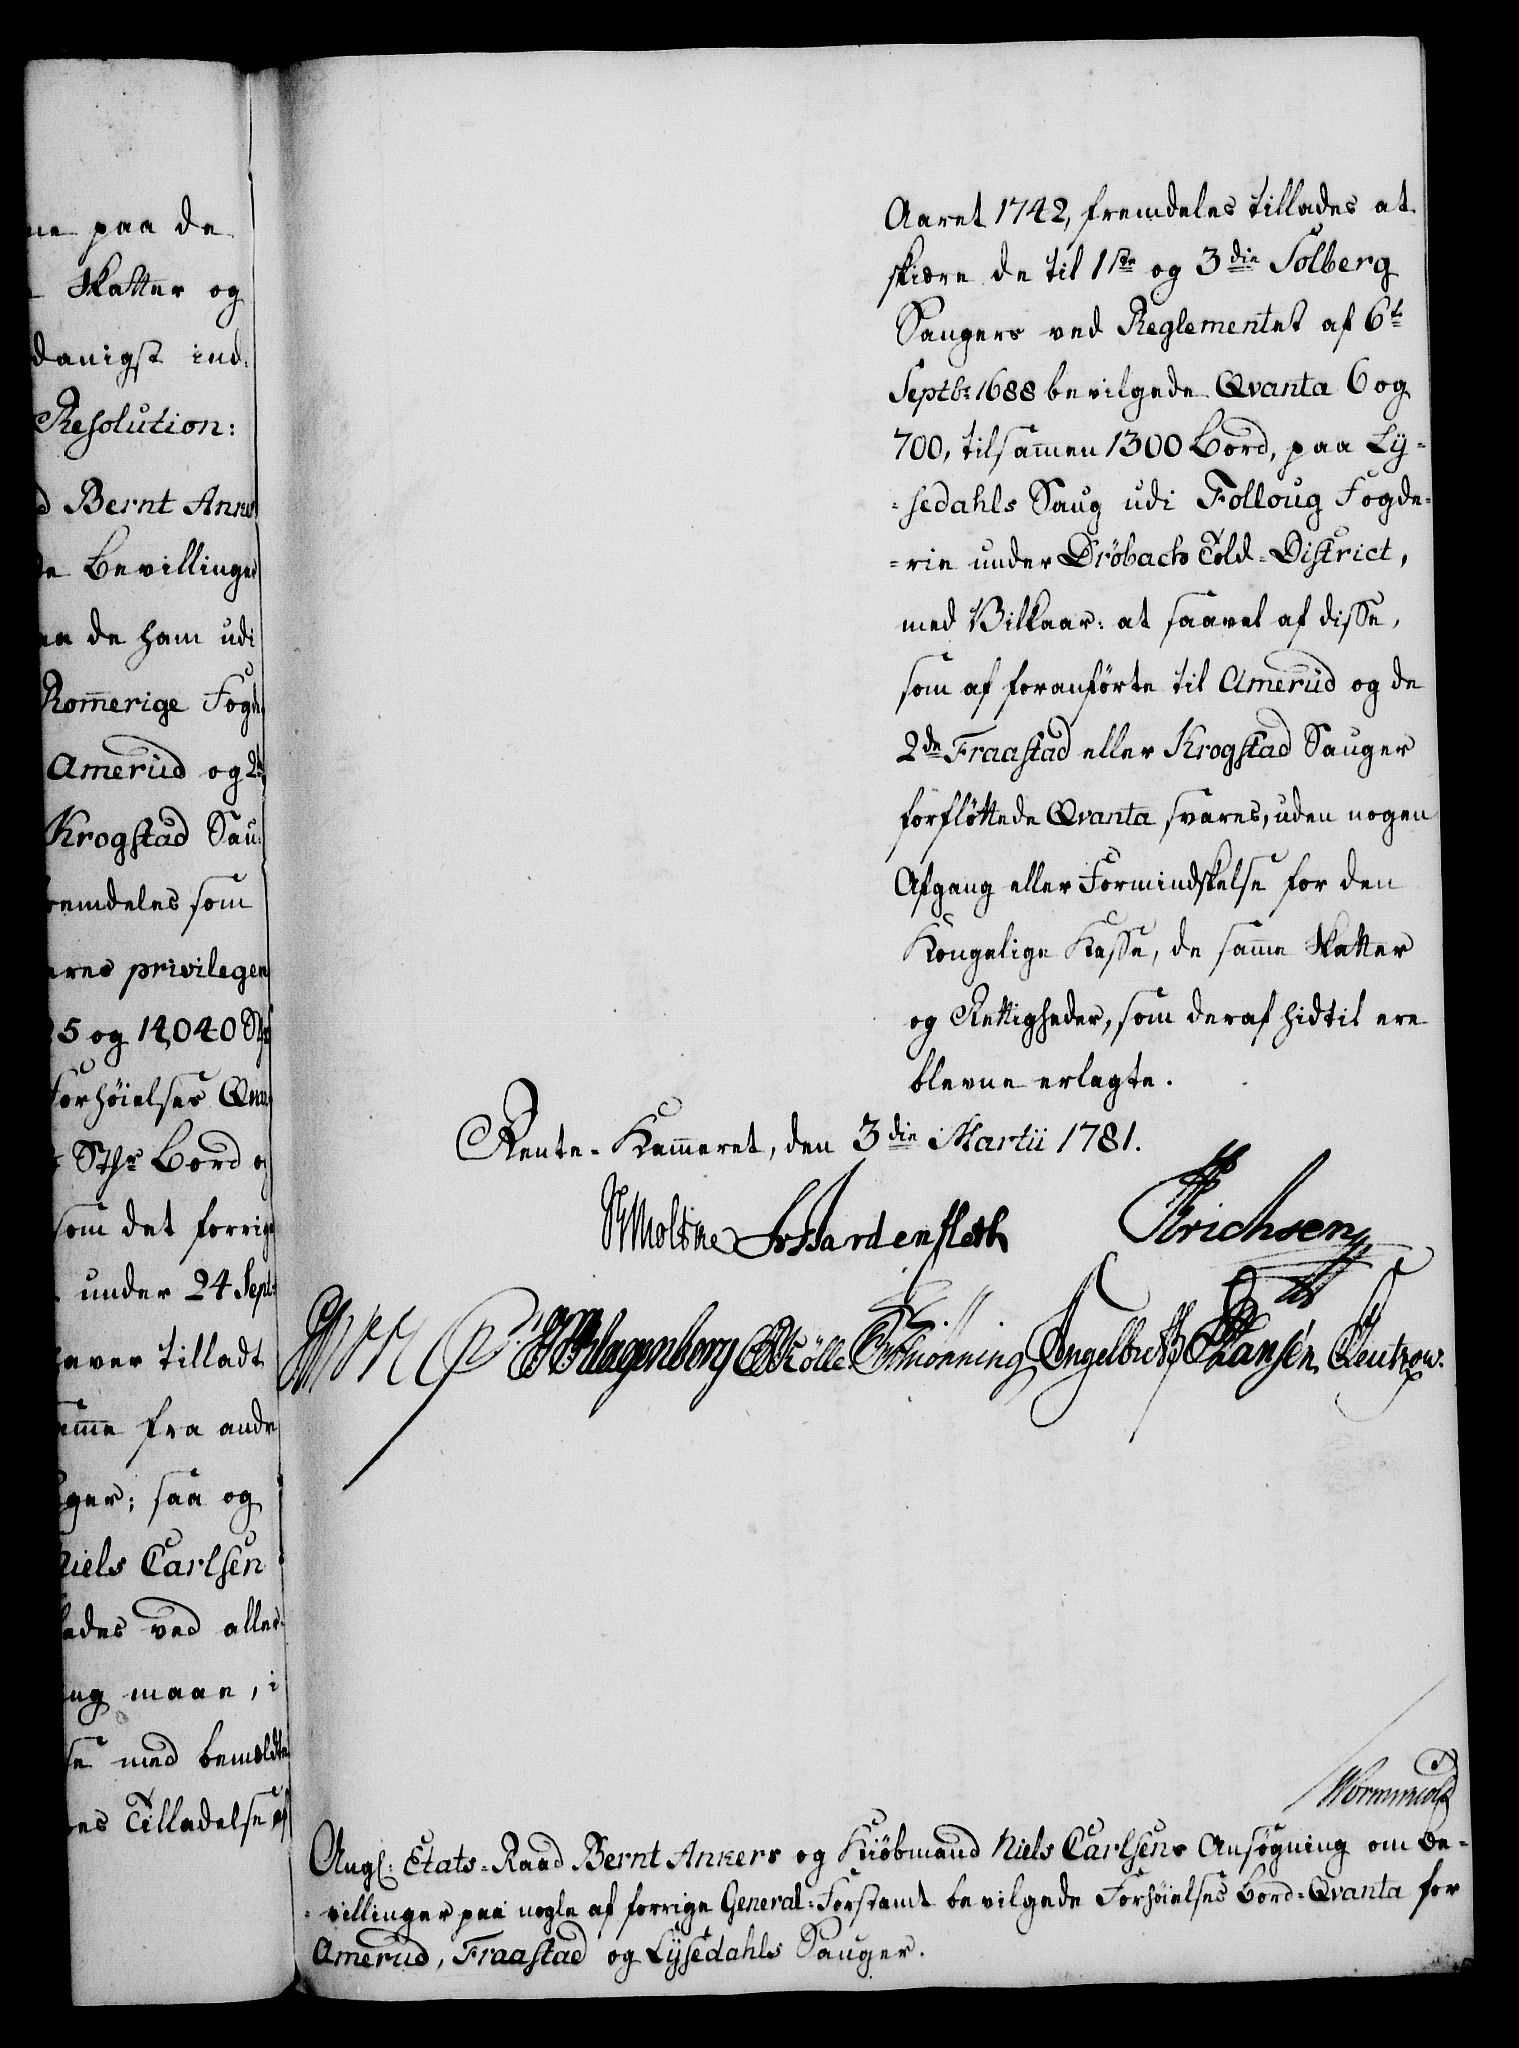 ne paa de
Skatter og
danigst ind-
Resolution:
Bernt Anker
Bevillinger
de ham udi
Rom̄erige Fogde
Amerud og 2de
Krogstad Sau-
fremdeles som
privilegen
5 og 14,040 St
Forhöielses Qvan
Sthr Bord og
som det forrige
under 24 Sept:
haver tilladt
samme fra andre
ger; saa og
Niels Carlsen
ledes ved aller-
maae, i
se med bemeldte
Tilladelse af
Aaret 1742, fremdeles tillades at
skiære de til 1ste og 3die Solberg
Sauges ved Reglementet af 6t
Septbr 1688 bevilgede Qvanta 6 og
700, tilsam̄en 1300 Bord, paa Ly-
-sedahls Saug udi Folloug Fogde-
-rie under Dröbachs Told-District,
med Vilkaar: at saavel af disse,
som af foranförte til Amerud og de
2de Fraastad eller Krogstad Sauger
forflöttede Qvanta svares, uden nogen
Afgang eller Formindskelse for den
Kongelige Kasse, de sam̄e Skatter
og Rettigheder, som deraf hidtil ere
blevne erlagte.
Rente-Kam̄eret, den 3die Martii 1781.
Moltke Hardenfleth Erichsen
Klagenberg Kölle Schiönning Engelbreth Hansen Leutzow.
Wormwold
Angl: Etats-Raad Bernt Ankers og Kiöbmand Niels Carlsens Ansögning om Be-
-villinger paa nogle af forrige General-Forstamt bevilgede Forhöielses Bord-Qvanta for
Amerud, Fraastad og Lysedahls Sauger.